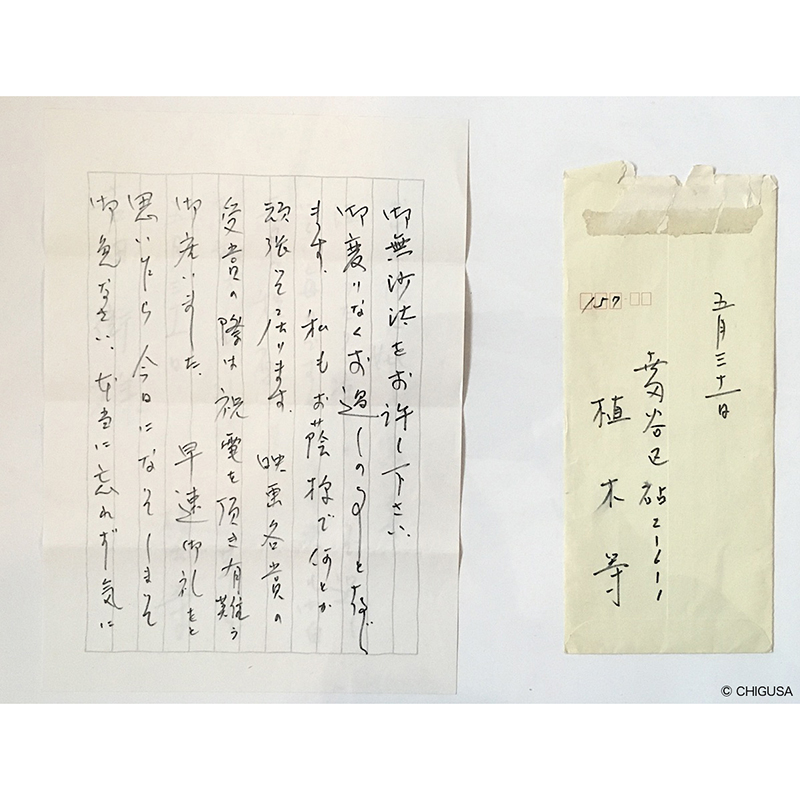 御無沙汰をお許し下さい。
御変りなくお過しの事と存じ
ます。私もお蔭様で何とか
頑張って居ります。映画各賞の
受賞の際は祝電を頂き有難う
御座いました。早速御礼をと
思いたら今日になってしまって
御免なさい。本当に忘れず気に
五月三十一日
157
世田谷区砧2-16-11
植木等
© CHIGUSA